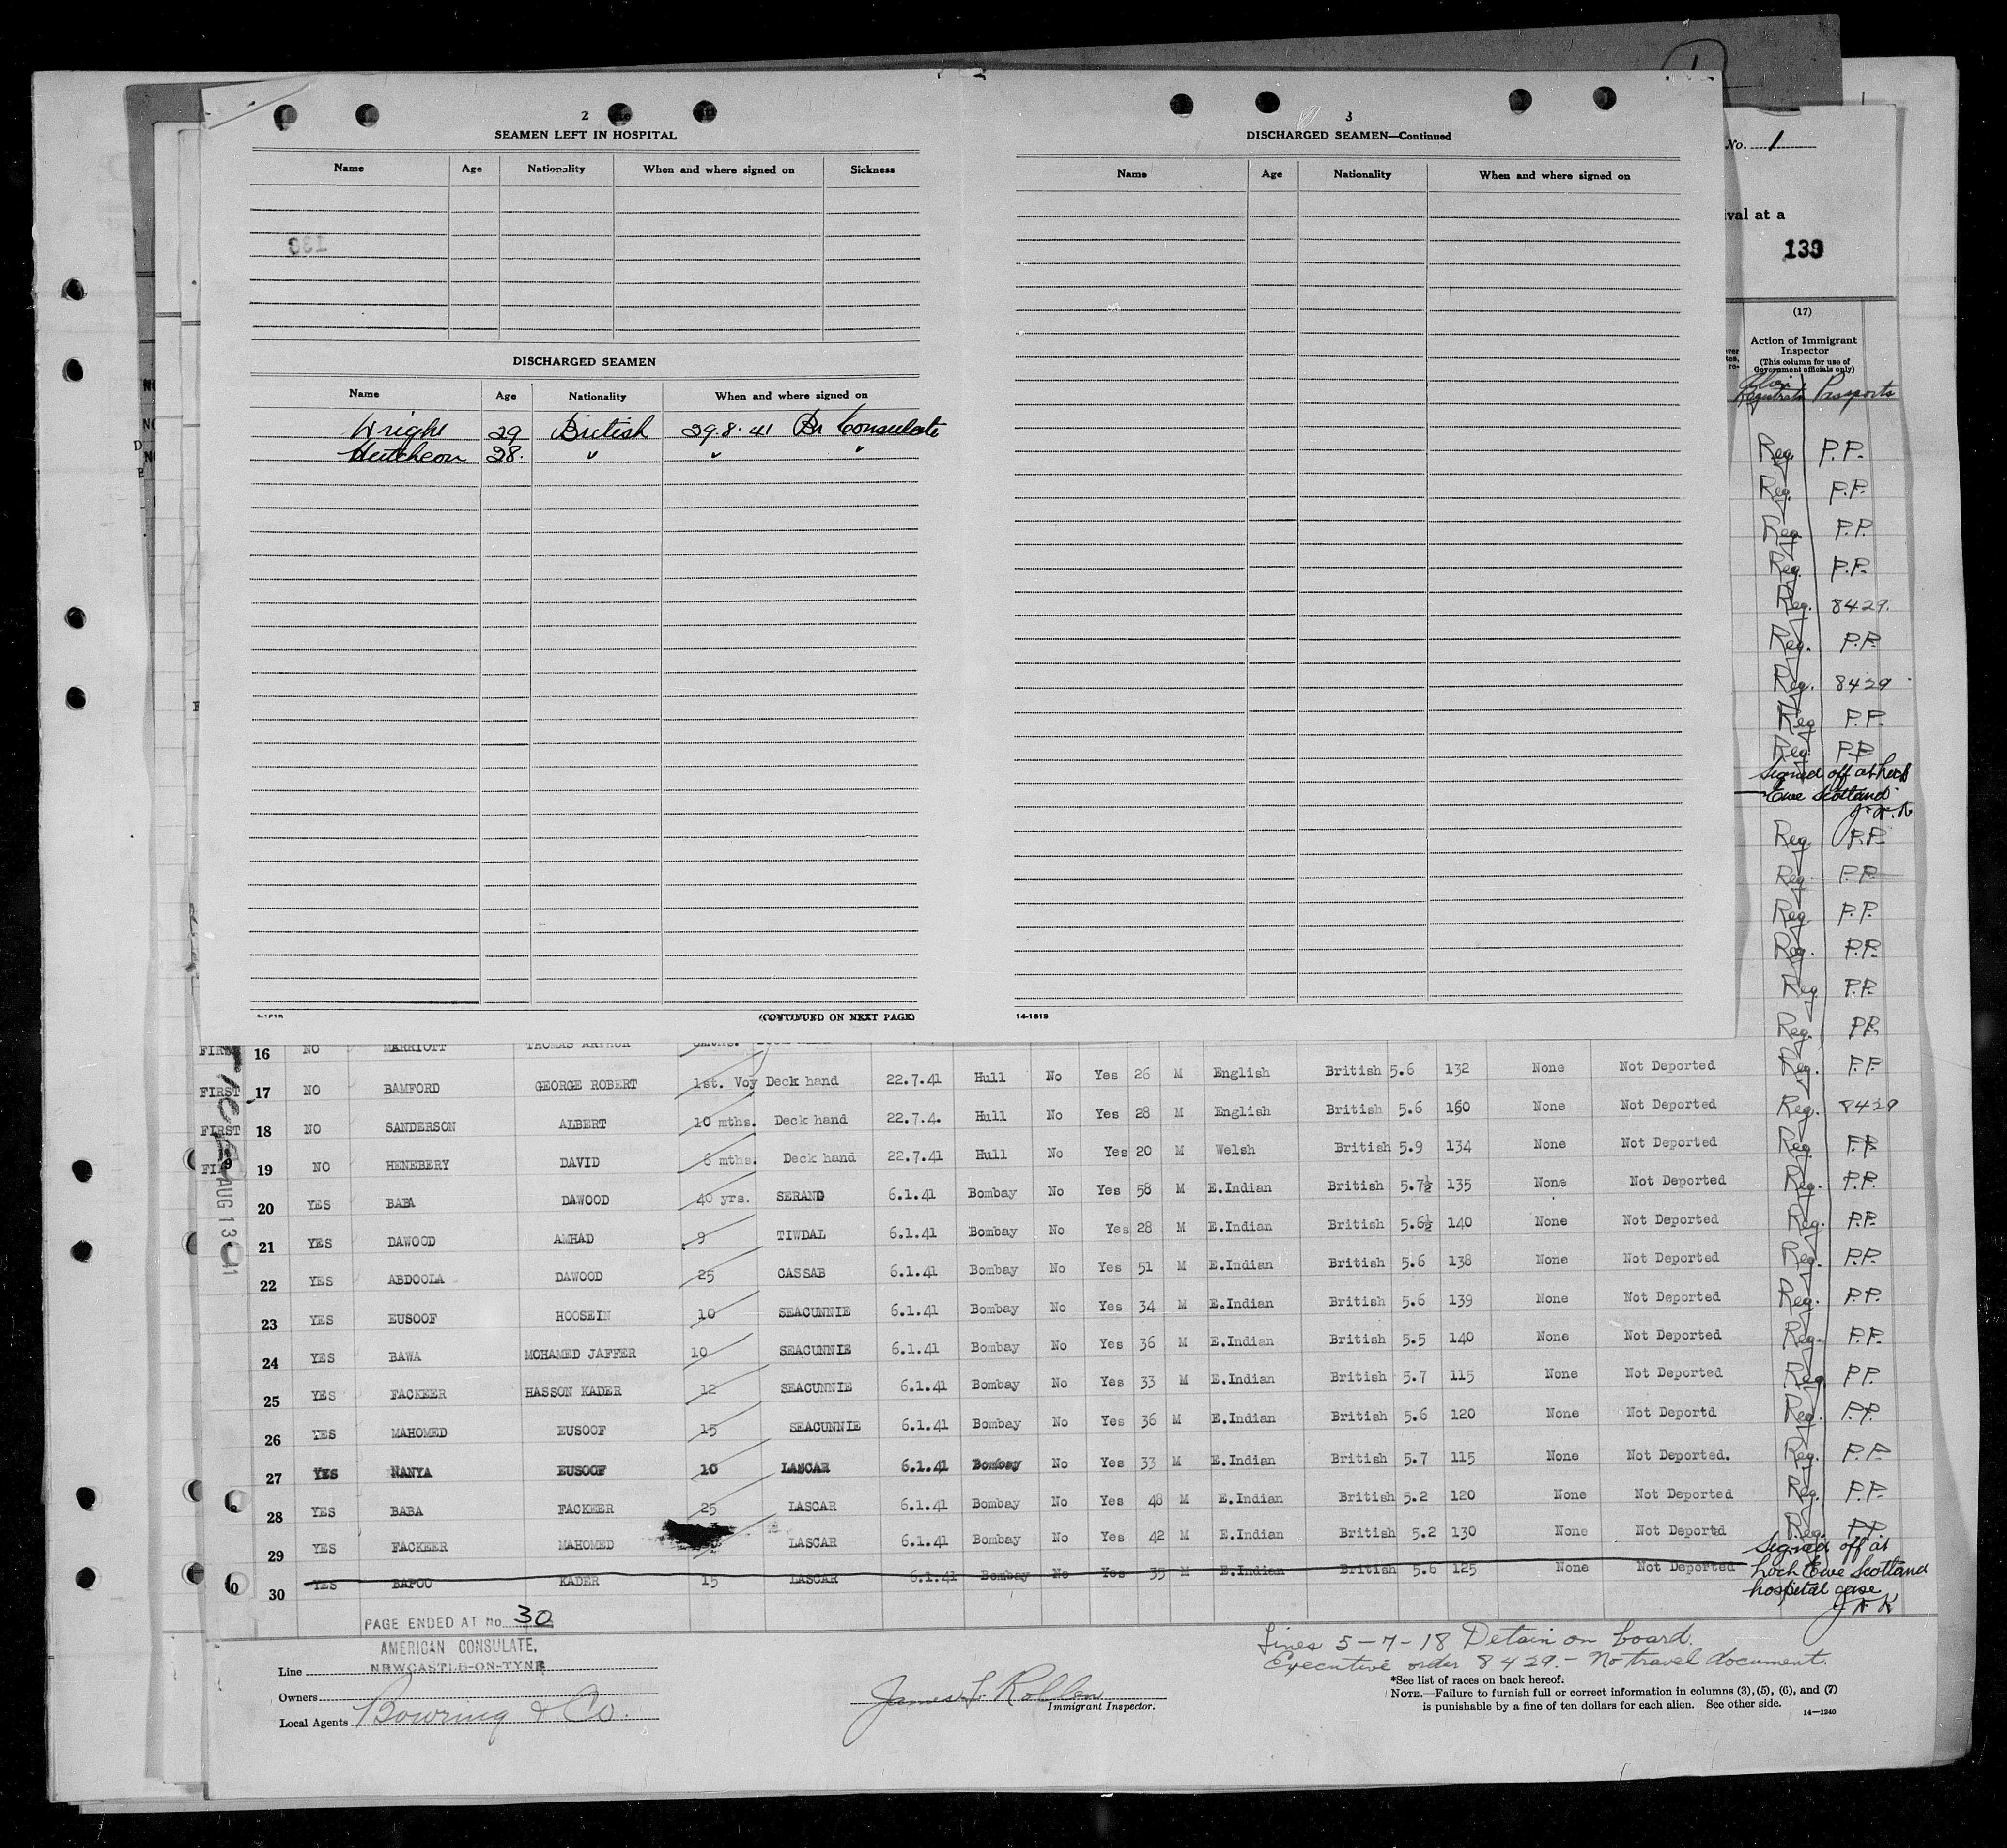 2
SEAMEN LEFT IN HOSPITAL
Name Age Nationality When and where signed on Sickness
DISCHARGED SEAMEN
Name Age Nationality When and where signed on
Wright 29 British 29.8.41 Br Consulate
Hutcheon 28. " " "
(CONTINUED ON NEXT PAGE)
3
DISCHARGED SEAMEN—Continued
Name Age Nationality When and where signed on
14-1613
No. 1
val at a
139
(17)
Action of Immigrant
Inspector
(This column for use of
Government officials only)
Passports
Reg. P.P.
Reg. P.P.
Reg. P.P.
Reg. P.P.
Reg. 8429.
Reg. P.P.
Reg. 8429
Reg P.P.
Reg. P.P
Signed off at Loch
Ewe Scotland
Reg P.P.
Reg. P.P.
Reg. P.P.
Reg. P.P.
Reg. P.P.
Reg. P.P.
FIRST 16 NO MARRIOTT THOMAS ARTHUR Reg. P.P.
FIRST 17 NO BAMFORD GEORGE ROBERT 1st. Voy Deck hand 22.7.41 Hull No Yes 26 M English British 5.6 132 None Not Deported
FIRST 18 NO SANDERSON ALBERT 10 mths. Deck hand 22.7.4. Hull No Yes 28 M English British 5.6 160 None Not Deported Reg. 8429
19 NO HENEBERY DAVID 6 mths. Deck hand 22.7.41 Hull No Yes 20 M Welsh British 5.9 134 None Not Deported Reg. P.P.
20 YES BABA DAWOOD 40 yrs. SERANG 6.1.41 Bombay No Yes 58 M E.Indian British 5.7½ 135 None Not Deported Reg. P.P.
21 YES DAWOOD AMHAD 9 TIWDAL 6.1.41 Bombay No Yes 28 M E.Indian British 5.6½ 140 None Not Deported Reg. P.P.
22 YES ABDOOLA DAWOOD 25 CASSAB 6.1.41 Bombay No Yes 51 M E.Indian British 5.6 138 None Not Deported Reg. P.P.
23 YES EUSOOF HOOSEIN 10 SEACUNNIE 6.1.41 Bombay No Yes 34 M E.Indian British 5.6 139 None Not Deported Reg. P.P.
24 YES BAWA MOHAMED JAFFER 10 SEACUNNIE 6.1.41 Bombay No Yes 36 M E.Indian British 5.5 140 None Not Deported Reg. P.P.
25 YES FACKEER HASSON KADER 12 SEACUNNIE 6.1.41 Bombay No Yes 33 M E.Indian British 5.7 115 None Not Deported Reg. P.P.
26 YES MAHOMED EUSOOF 15 SEACUNNIE 6.1.41 Bombay No Yes 36 M E.Indian British 5.6 120 None Not Deportd Reg. P.P.
27 YES NANYA EUSOOF 10 LASCAR 6.1.41 Bombay No Yes 33 M E.Indian British 5.7 115 None Not Deported. Reg. P.P
28 YES BABA FACKEER 25 LASCAR 6.1.41 Bombay No Yes 48 M E.Indian British 5.2 120 None Not Deported Reg. P.P.
29 YES FACKEER MAHOMED LASCAR 6.1.41 Bombay No Yes 42 M E.Indian British 5.2 130 None Not Deported Reg. P.P.
30 YES BAPOO KADER 15 LASCAR 6.1.41 Bombay No Yes 35 M E.Indian British 5.6 125 None Not Deported Signed off at
Loch Ewe Scotland
hospital case
AUG 13
PAGE ENDED AT No. 30
AMERICAN CONSULATE,
NEWCASTLE-ON-TYNE
Line
Owners
Local Agents Bowring & Co.
Immigrant Inspector.
Lines 5-7-18 Detain on board.
Executive order 8429.- No travel document.
*See list of races on back hereof.
NOTE.—Failure to furnish full or correct information in columns (3), (5), (6), and (7)
is punishable by a fine of ten dollars for each alien. See other side.
14—1240